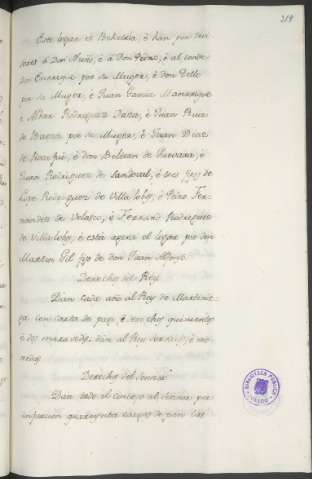 219
Este logar es Behetria, é han por seu
ores á Don Nuño, é á Don Pedro, é al conde
don Enrrique por su Muger, é don Tello
por su Muger, é Juan Garcia Manrrique
é Alvar Rodriguez Daza, é Juan Ruiz
de Baeza por su Muger, é Juan Diaz
de é don Beltran de Guevara, é
Juan Rodriguez de Sandoval, é los fijos de
Lope Rodriguez de Villa lobos, é Pero Fer-
nandez de Velasco, é Ferrand Rodriguez
de Villa lobos, é está agora el logar por don
Martin Gil fijo de don Juan Alfonso.
Derechos del Rey
Dan cada año al Rey de Martinie-
ga con carta de pago, é
é dos maravedis, dan al Rey servicios, é mo-
nedas
Derechos del Señor
Dan todo el concejo al Señor por
infurcion quarenta cargas de pan
BIBLIOTECA PUBLICA